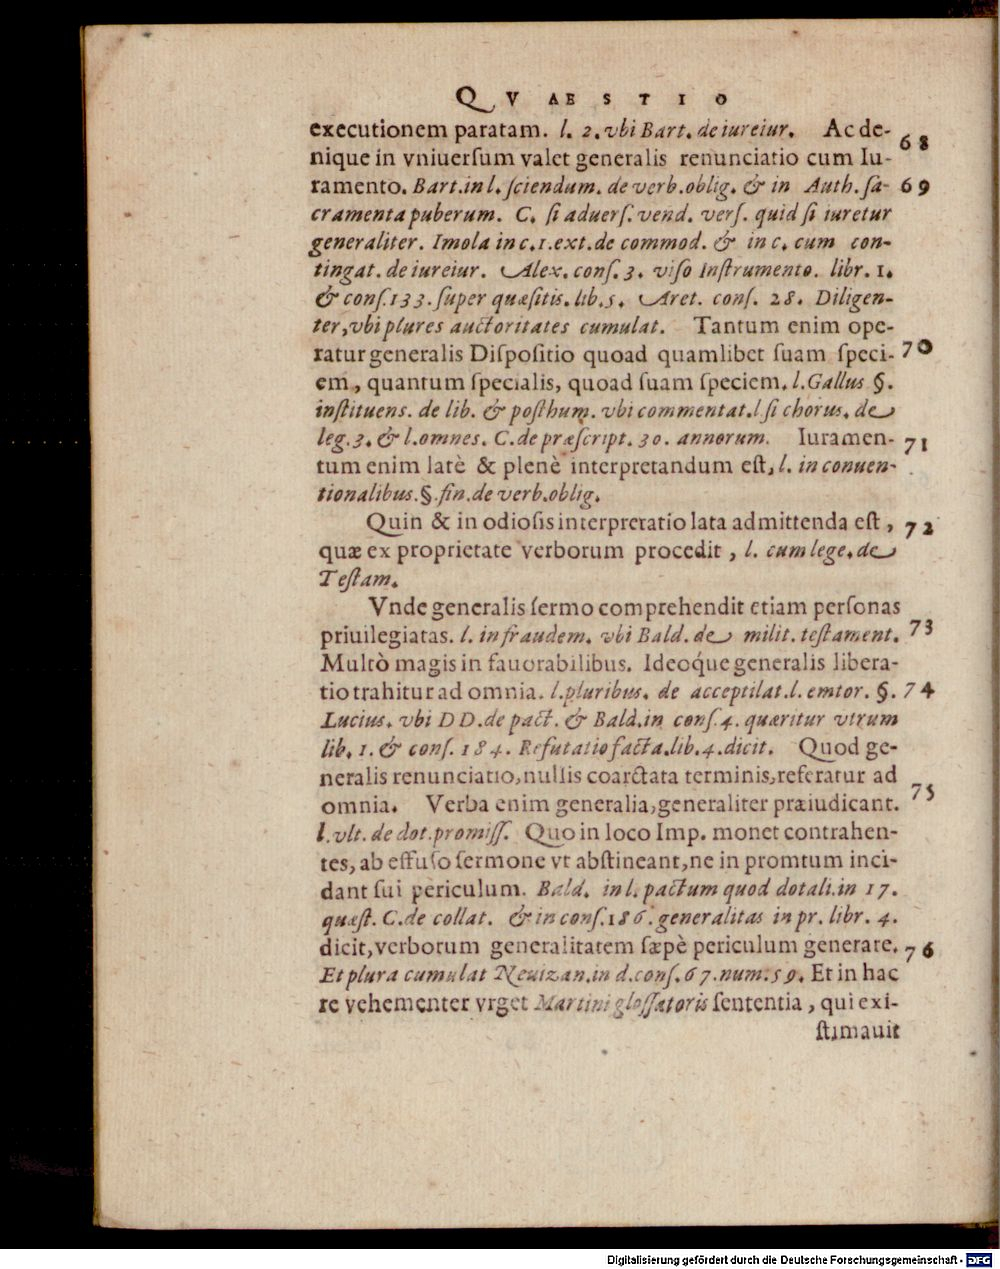 QVAESTIO
executionem paratam. l. 2. vbi Bart. de iureiur. Ac de- 68
nique in vniuerſum valet generalis renunciatio cum Iu-
ramento. Bart. in l. ſciendum. de verb. oblig. & in Auth. ſa- 69
cramenta puberum. C. ſi aduerſ. vend. verſ. quid ſi iuretur
generaliter. Imola in c. 1. ext. de commod. & in c. cum con-
tingat. de iureiur. Alex. conſ. 3. viſo Inſtrumento. libr. 1.
& conſ. 133. ſuper quæſitis. lib. 5. Aret. conſ. 28. Diligen-
ter, vbi plures auctoritates cumulat. Tantum enim ope-
ratur generalis Diſpoſitio quoad quamlibet ſuam ſpeci- 70
em, quantum ſpecialis, quoad ſuam ſpeciem. l. Gallus §.
inſtituens. de lib. & poſthum. vbi commentat. l. ſi chorus. de
leg. 3. & l. omnes. C. de præſcript. 30. annorum. Iuramen- 71
tum enim latè & plenè interpretandum eſt, l. in conuen-
tionalibus. §. fin. de verb. oblig.
Quin & in odioſis interpretatio lata admittenda eſt, 72
quæ ex proprietate verborum procedit, l. cum lege. de
Teſtam.
Vnde generalis ſermo comprehendit etiam perſonas
priuilegiatas. l. in fraudem. vbi Bald. de milit. teſtament. 73
Multò magis in fauorabilibus. Ideoq́ue generalis libera-
tio trahitur ad omnia. l. pluribus. de acceptilat. l. emtor. §. 74
Lucius. vbi DD. de pact. & Bald. in conſ. 4. quæritur vtrum
lib. 1. & conſ. 184. Refutatio facta. lib. 4. dicit. Quod ge-
neralis renunciatio, nullis coarctata terminis, referatur ad
omnia. Verba enim generalia, generaliter præiudicant. 75
l. vlt. de dot. promiſſ. Quo in loco Imp. monet contrahen-
tes, ab effuſo ſermone vt abſtineant, ne in promtum inci-
dant ſui periculum. Bald. in l. pactum quod dotali. in 17.
quæſt. C. de collat. & in conſ. 186. generalitas in pr. libr. 4.
dicit, verborum generalitatem ſæpè periculum generare. 76
Et plura cumulat Neuizan. in d. conſ. 67. num. 59. Et in hac
re vehementer vrget Martini gloſſatoris ſententia, qui exi-
ſtimauit
Digitalisierung gefördert durch die Deutsche Forschungsgemeinschaft - DFG